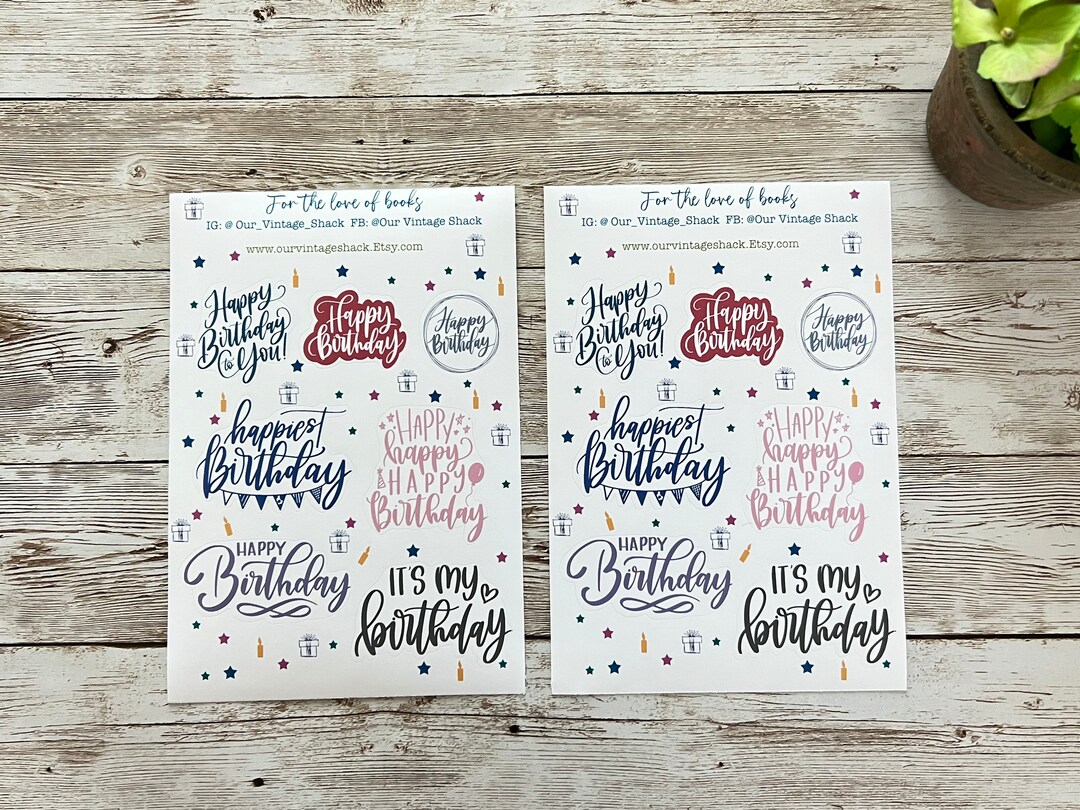 For the love of books
IG: @ Our_Vintage_Shack FB: @Our Vintage Shack
www.ourvintageshack.Etsy.com
Happy
Birthday
to You!
Happy
Birthday
Happy
Birthday
happiest
Birthday
HAPPY
happy
HAPPY
Birthday
HAPPY
Birthday
IT'S MY
birthday
For the love of books
IG: @ Our_Vintage_Shack FB: @Our Vintage Shack
www.ourvintageshack.Etsy.com
Happy
Birthday
to You!
Happy
Birthday
Happy
Birthday
happiest
Birthday
HAPPY
happy
HAPPY
Birthday
HAPPY
Birthday
IT'S MY
birthday